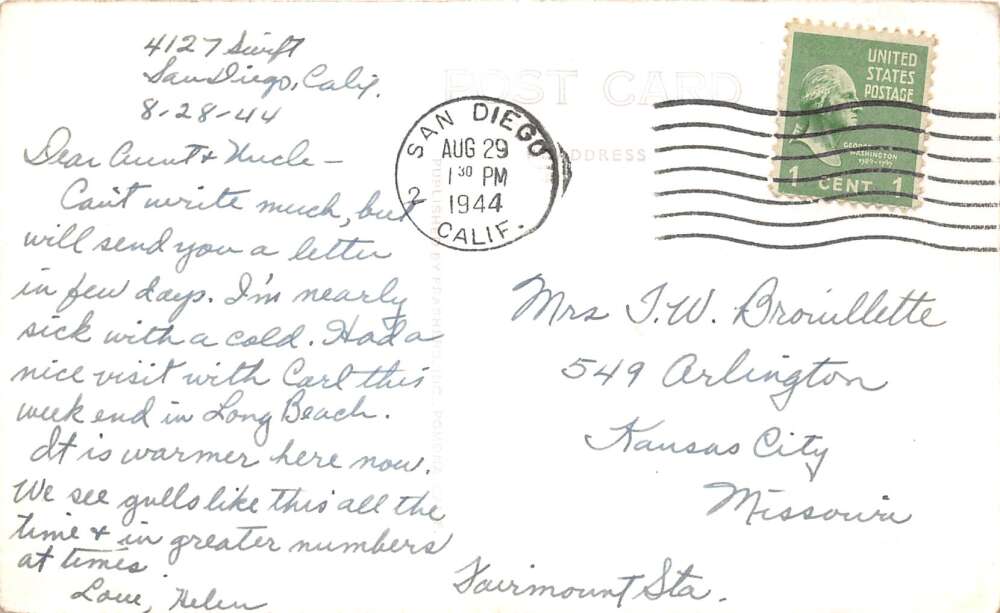 4127 Swift
San Diego, Calif.
8-28-44
Dear Aunt & Uncle –
Can't write much, but
will send you a letter
in few days. I'm nearly
sick with a cold. Had a
nice visit with Carl this
week end in Long Beach.
It is warmer here now.
We see gulls like this all the
time & in greater numbers
at times
Love, Helen
POST CARD
ADDRESS
SAN DIEGO
AUG 29
1 30 PM
1944
2
CALIF.
UNITED
STATES
POSTAGE
GEORGE
WASHINGTON
1789-1797
1 CENT 1
Mrs T.W. Brouillette
549 Arlington
Kansas City
Missouri
Fairmount Sta.